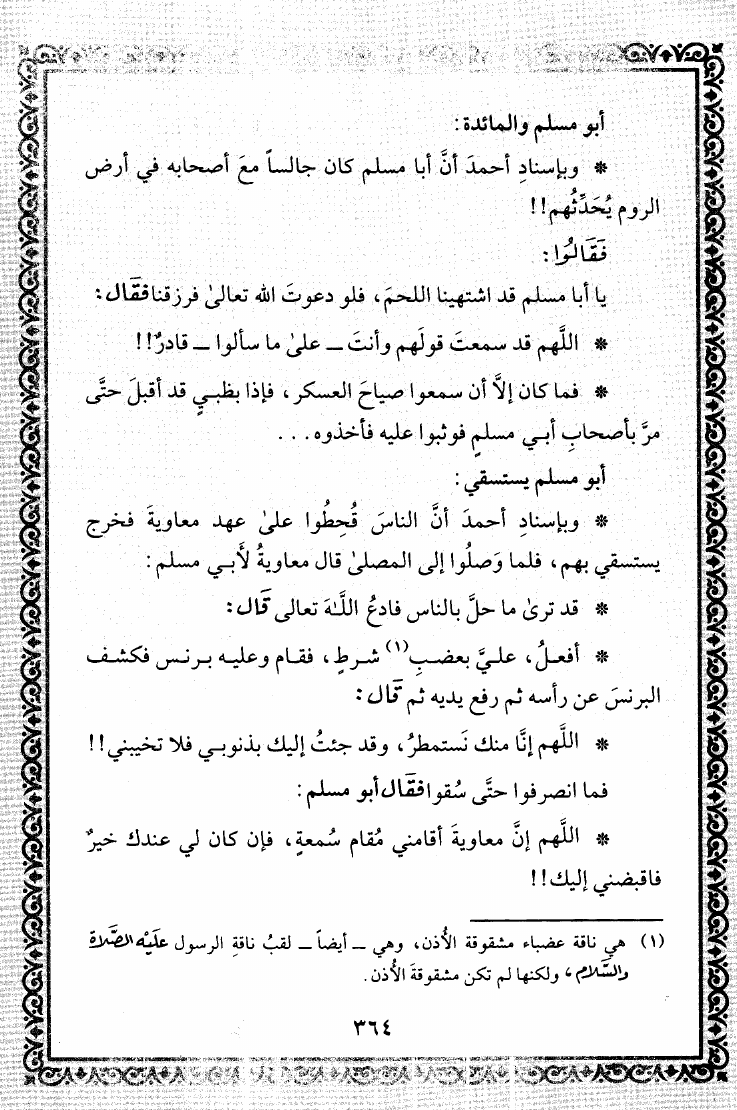 أبو مسلم والمائدة:
* وبإسنادِ أحمدَ أنَّ أبا مسلم كان جالساً معَ أصحابه في أرض
الروم يُحَدِّثُهم!!
فَقَالُوا:
يا أبا مسلم قد اشتهينا اللحمَ، فلو دعوتَ الله تعالىٰ فرزقنا فقَال:
* اللَّهم قد سمعتَ قولَهم وأنتَ ــ علىٰ ما سألوا ــ قادرٌ!!
* فما كان إلاَّ أن سمعوا صياحَ العسكر، فإذا بظبيٍ قد أقبلَ حتَّى
مرَّ بأصحابِ أبي مسلمٍ فوثبوا عليه فأخذوه...
أبو مسلم يستسقي:
* وبإسنادِ أحمدَ أنَّ الناسَ قُحِطُوا علىٰ عهد معاويةَ فخرج
يستسقي بهم، فلما وَصلُوا إلى المصلىٰ قال معاويةُ لأَبي مسلم:
* قد ترىٰ ما حلَّ بالناس فادعُ اللَّهَ تعالى قَال:
* أفعلُ، عليَّ بعضبِ(١) شرطٍ، فقام وعليه برنس فكشف
البرنسَ عن رأسه ثم رفع يديه ثم قَال:
* اللَّهم إنَّا منك نَستمطرُ، وقد جئتُ إليك بذنوبي فلا تخيبني!!
فما انصرفوا حتَّى سُقوا فقَال أبو مسلم:
* اللَّهم إنَّ معاويةَ أقامني مُقام سُمعةٍ، فإن كان لي عندك خيرٌ
فاقبضني إليك!!
(١) هي ناقة عضباء مشقوقة الأُذن، وهي ــ أيضاً ــ لقبُ ناقةِ الرسول عَليْه الصَّلاة
والسَّلام، ولكنها لم تكن مشقوقةَ الأُذن.
٣٦٤